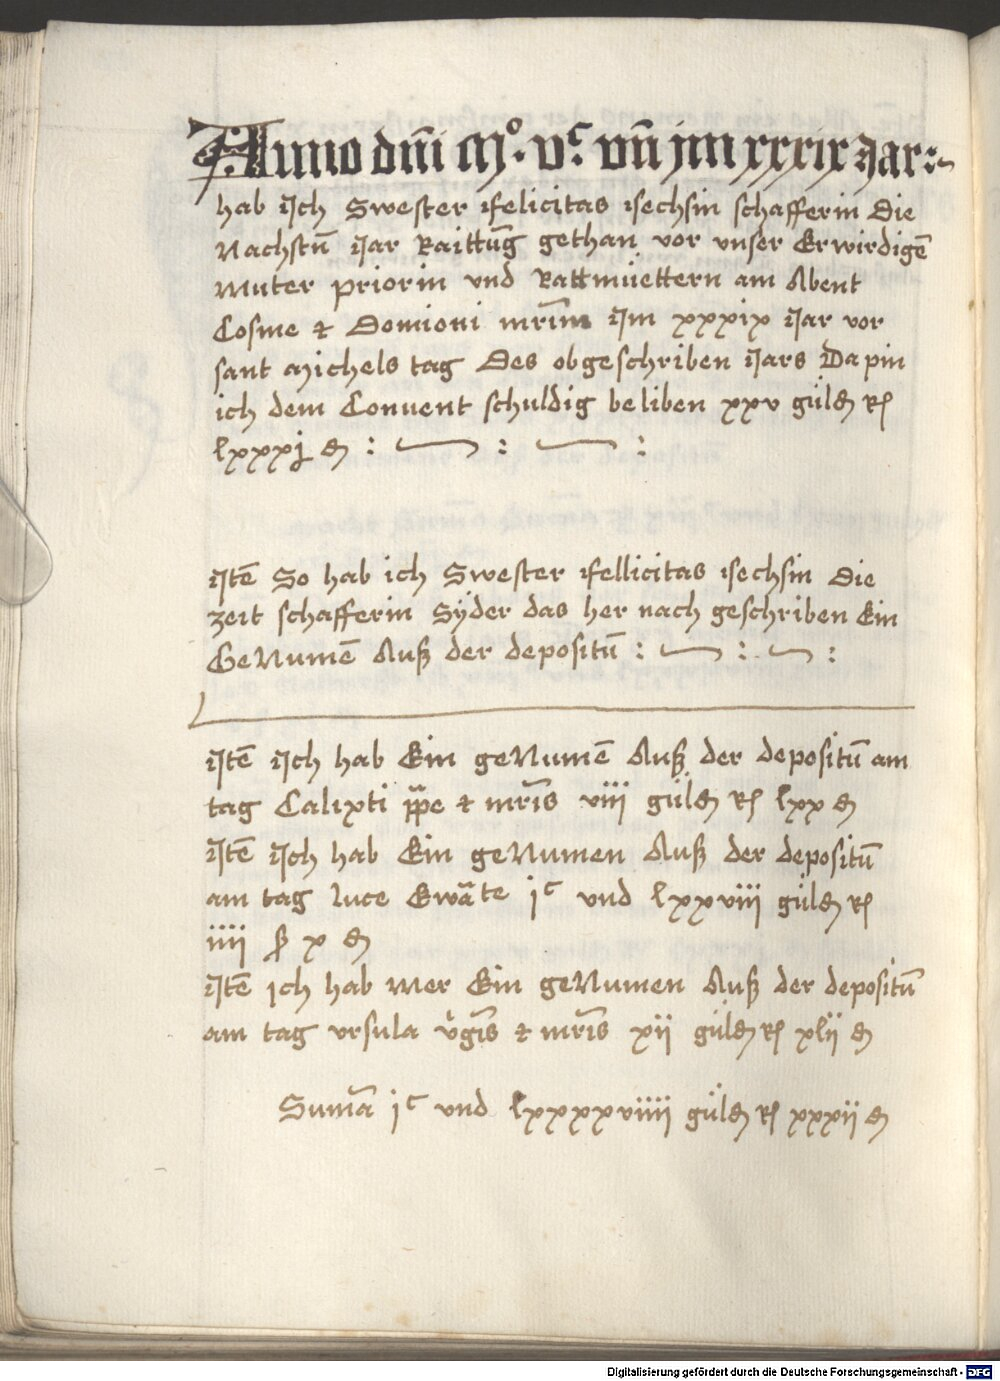 Anno dm̄i M°. vᶜ. vn̄ jm xxxix Jar :~
hab Jch Swester felicitas sechsin schafferin Die
Nachstn̄ Jar Raittūg gethan vor vnser Erwirdigē
Muter priorin vnd Rattmüettern am Abent
Cosme et Domioni mr̄im Jm xxxix Jar vor
sant Michels tag Des obgeschriben Jars Da pin
ich dem Convent schuldig beliben xxv güldn Rh
lxxxj dn : ~ : ~ :
Jtē So hab ich Swester fellicitas sechsin Die
zeit schafferin Sÿder das her nach geschriben Ein
GeNumē Auß der depositū : ~ : ~ :
Jtē Jch hab Ein geNumē Auß der depositū am
tag Calixti pp̄e et mr̄is viii güldn Rh lxx dn
Jtē Jch hab Ein geNumen Auß der depositū
am tag luce Ewāte jᶜ vnd lxxviii güldn Rh
iiii ß x dn
Jtē ich hab mer Ein geNumen Auß der depositū
am tag vrsula v̄gīs et mr̄is xii güldn Rh xlii dn
Sum̄a jᶜ vnd lxxxxviiii güldn Rh xxxii dn
Digitalisierung gefördert durch die Deutsche Forschungsgemeinschaft - DFG